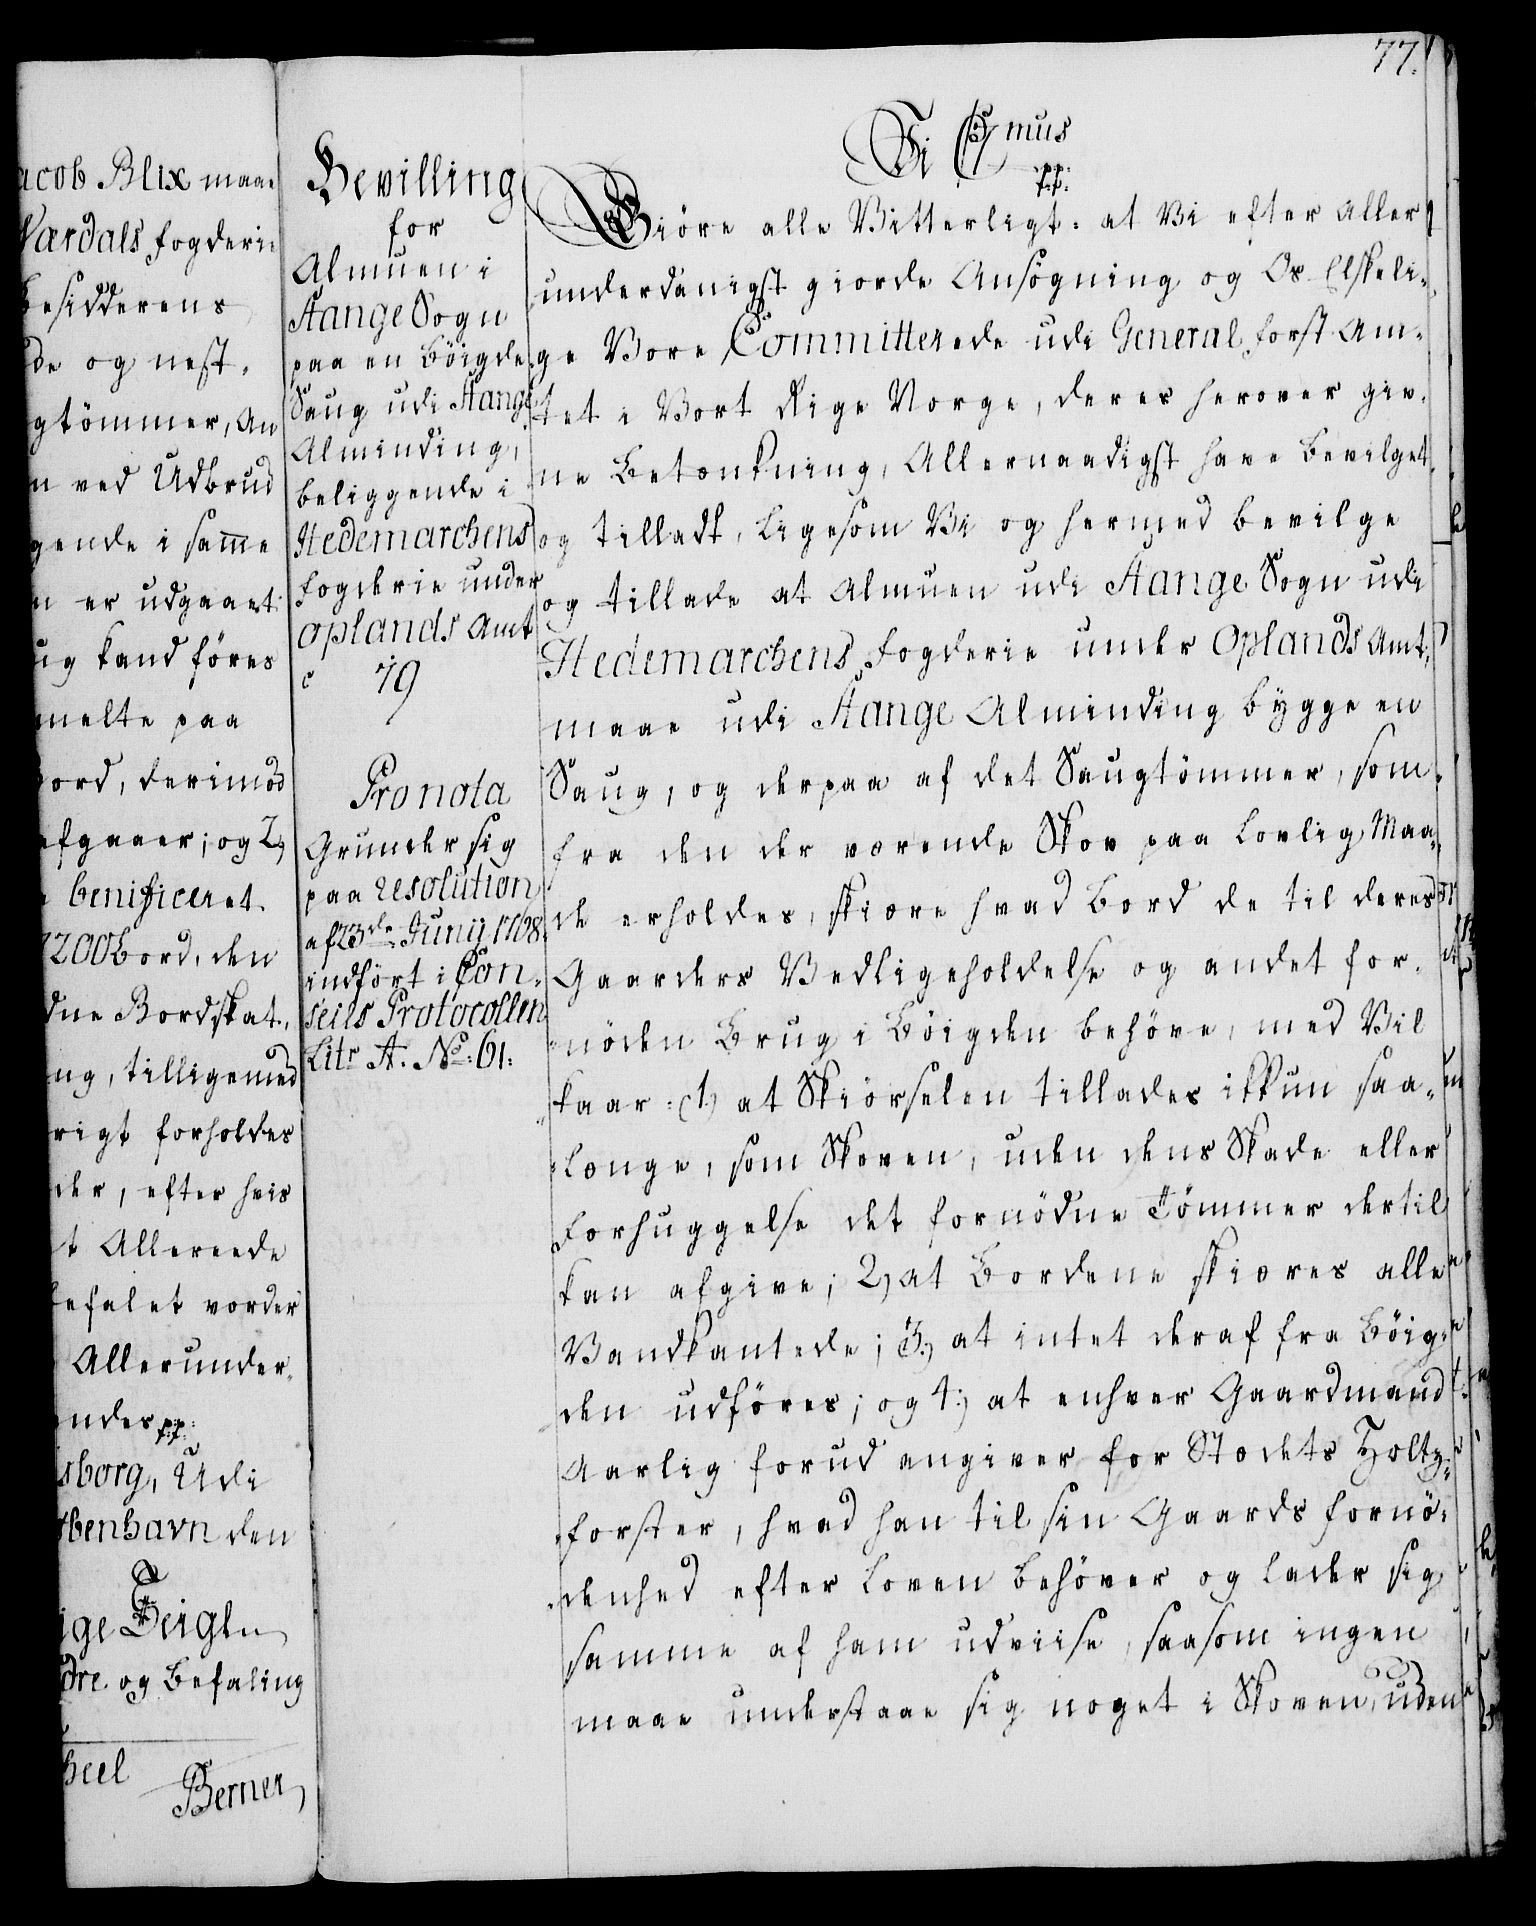 77.
acob Blix maae
Værdals fogderie
Besidderens
de og nest.
gtömmer, An
n ved Udbrud
gende i samme
n er udgaaet
ug kand föres
melte paa
Bord, derimod
afgaaer; og 2,
benificeret.
1200 Bord, den
dne Bordskat,
ng, tilligemed
rigt forholdes
der, efter hvis
t Allereede
befalet vorder
Allerunder-
ndes pp:
sborg, Udi
öbenhavn den
ige Seigln
dre og Befaling
heel
Berner
Bevilling
for
Almuen i
Stange Sogn
paa en Böigde
Saug udi Stange
Alminding,
beliggende i
Hedemarchens
Fogderie under
Oplands Amt
c 79
Pro nota
Grunder sig
paa resolution
af 23de Junij 1768.
indfört i Con-
seils Protocollen
Litr A. No: 61:
Vi C7mus
pp:
Giöre alle Vitterligt: at Vi efter aller
underdanigst giorde Ansögning og Os Elskeli-
ge Vore Committerede udi General Forst Am-
tet i Vort Rige Norge, deres herover giv-
ne Betænkning, Allernaadigst have bevilget
og tilladt, ligesom Vi og hermed bevilge
og tillade at Almuen udi Stange Sogn udi
Hedemarchens Fogderie under Oplands Amt,
maae udi Stange Alminding bygge en
Saug, og derpaa af det Saugtömmer, som
fra den der værende Skov paa lovlig Maa-
de erholdes, skiære hvad Bord de til deres
Gaarders Vedligeholdelse og andet for-
nöden Brug i Böigden behöve, med Vil
kaar: (1,) at Skiörselen tillades ikkun saa-
længe, som Skoven, uden dens Skade eller
Forhuggelse det fornödne Tömmer dertil
kan afgive; 2,) at Bordene skiæres alle
Vandkantede; 3,) at intet deraf fra Böig-
den udföres; og 4,) at enhver Gaardmand
Aarlig forud angiver for Stædets Holtz-
forster, hvad han til sin Gaards fornö-
denhed efter Loven behöver og lader sig
samme af ham udviise, saasom ingen
maae understaae sig noget i Skoven, uden